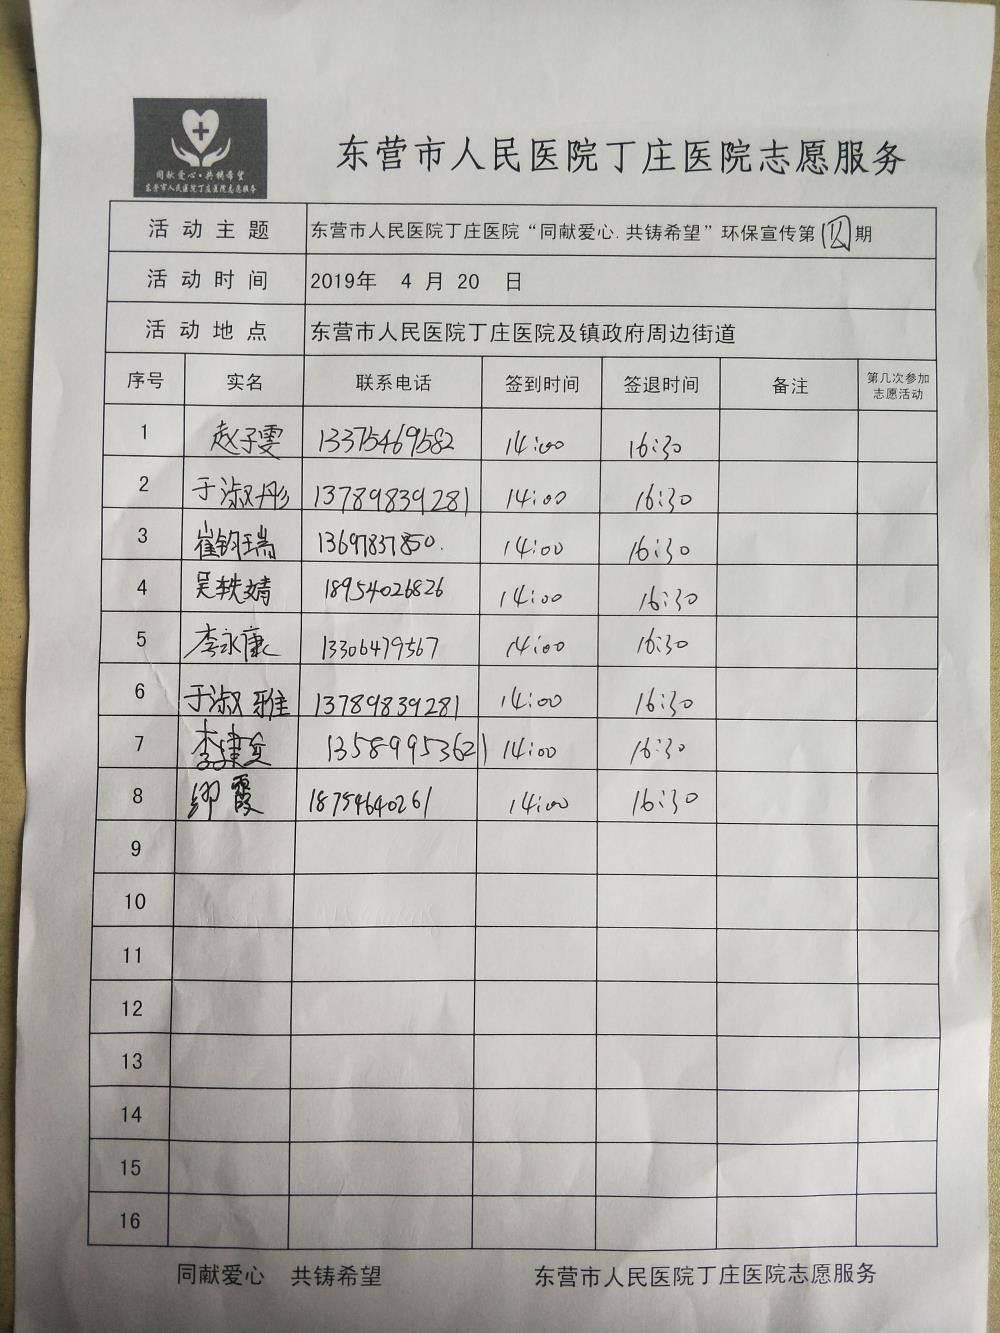 同献爱心·共铸希望
东营市人民医院丁庄医院志愿服务
东营市人民医院丁庄医院志愿服务
活动主题 东营市人民医院丁庄医院“同献爱心.共铸希望”环保宣传第四期
活动时间 2019年 4 月 20 日
活动地点 东营市人民医院丁庄医院及镇政府周边街道
序号 实名 联系电话 签到时间 签退时间 备注 第几次参加
志愿活动
1 赵子雯 13375469582 14:00 16:30
2 于淑彤 13789839281 14:00 16:30
3 崔钧瑞 13697837850. 14:00 16:30
4 吴轶婧 18954026826 14:00 16:30
5 李永康 13306479567 14:00 16:30
6 于淑雅 13789839281 14:00 16:30
7 李建 13589953621 14:00 16:30
8 霞 18754640261 14:00 16:30
9
10
11
12
13
14
15
16
同献爱心 共铸希望 东营市人民医院丁庄医院志愿服务